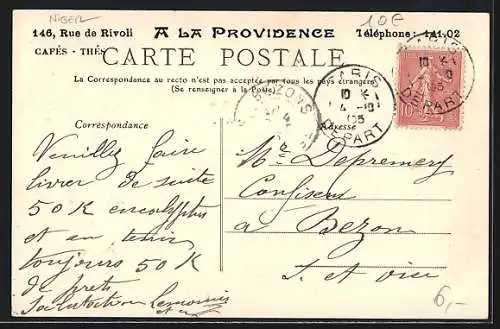 NIGER
10€
146, Rue de Rivoli A LA PROVIDENCE Téléphone: 141.02
CAFÉS - THÉS
CARTE POSTALE
La Correspondance au recto n'est pas acceptée par tous les pays étrangers
(Se renseigner à la Poste)
PARIS
4 - 10
05
DEPART
BEZONS
PARIS
05
DEPART
Correspondance
Adresse
Veuillez faire
livrer de suite
50 K eucalyptus
et en tenir
toujours 50 K
de prêts
Salutations
Mr Depremery
Confiseur
à Bezons
S. et Oise
6,-